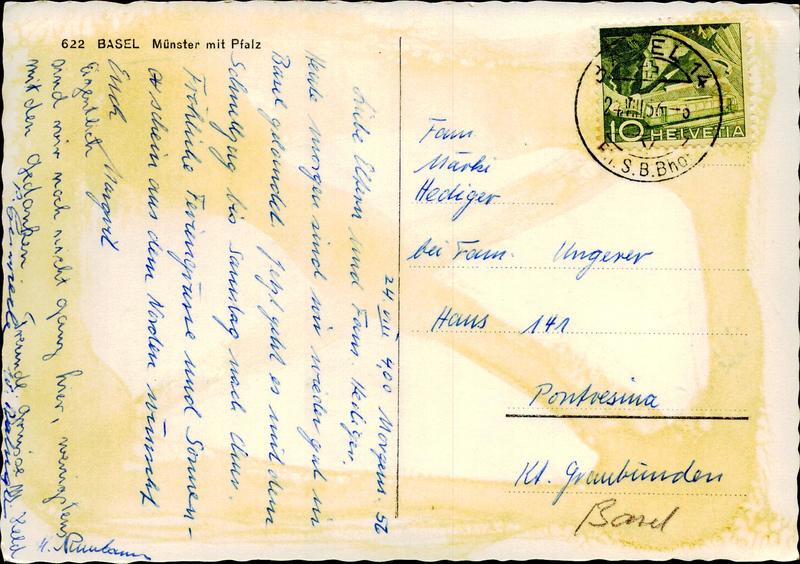 622 BASEL Münster mit Pfalz
24. VIII 4,00 Morgens. 56
Liebe Eltern und Fam. Hediger.
Heute morgen sind wir wieder gut in
Basel gelandet. Jetzt geht es mit dem
Schnellzug bis Samstag nach Chur.
Fröhliche Feriengrüsse und Sonnen-
schein aus dem Norden wünscht
Euch Margrit
Eigentlich
sind wir noch nicht ganz hier, wenigstens
mit den Gedanken.
Freundl. Grüsse M. Held
HELVETIA
10
BASEL 14
24.VIII.56
E.i.S.B.Bhof
Fam.
Märki
Hediger
bei Fam. Ungerer
Haus 141
Pontresina
Kt. Graubünden
Basel